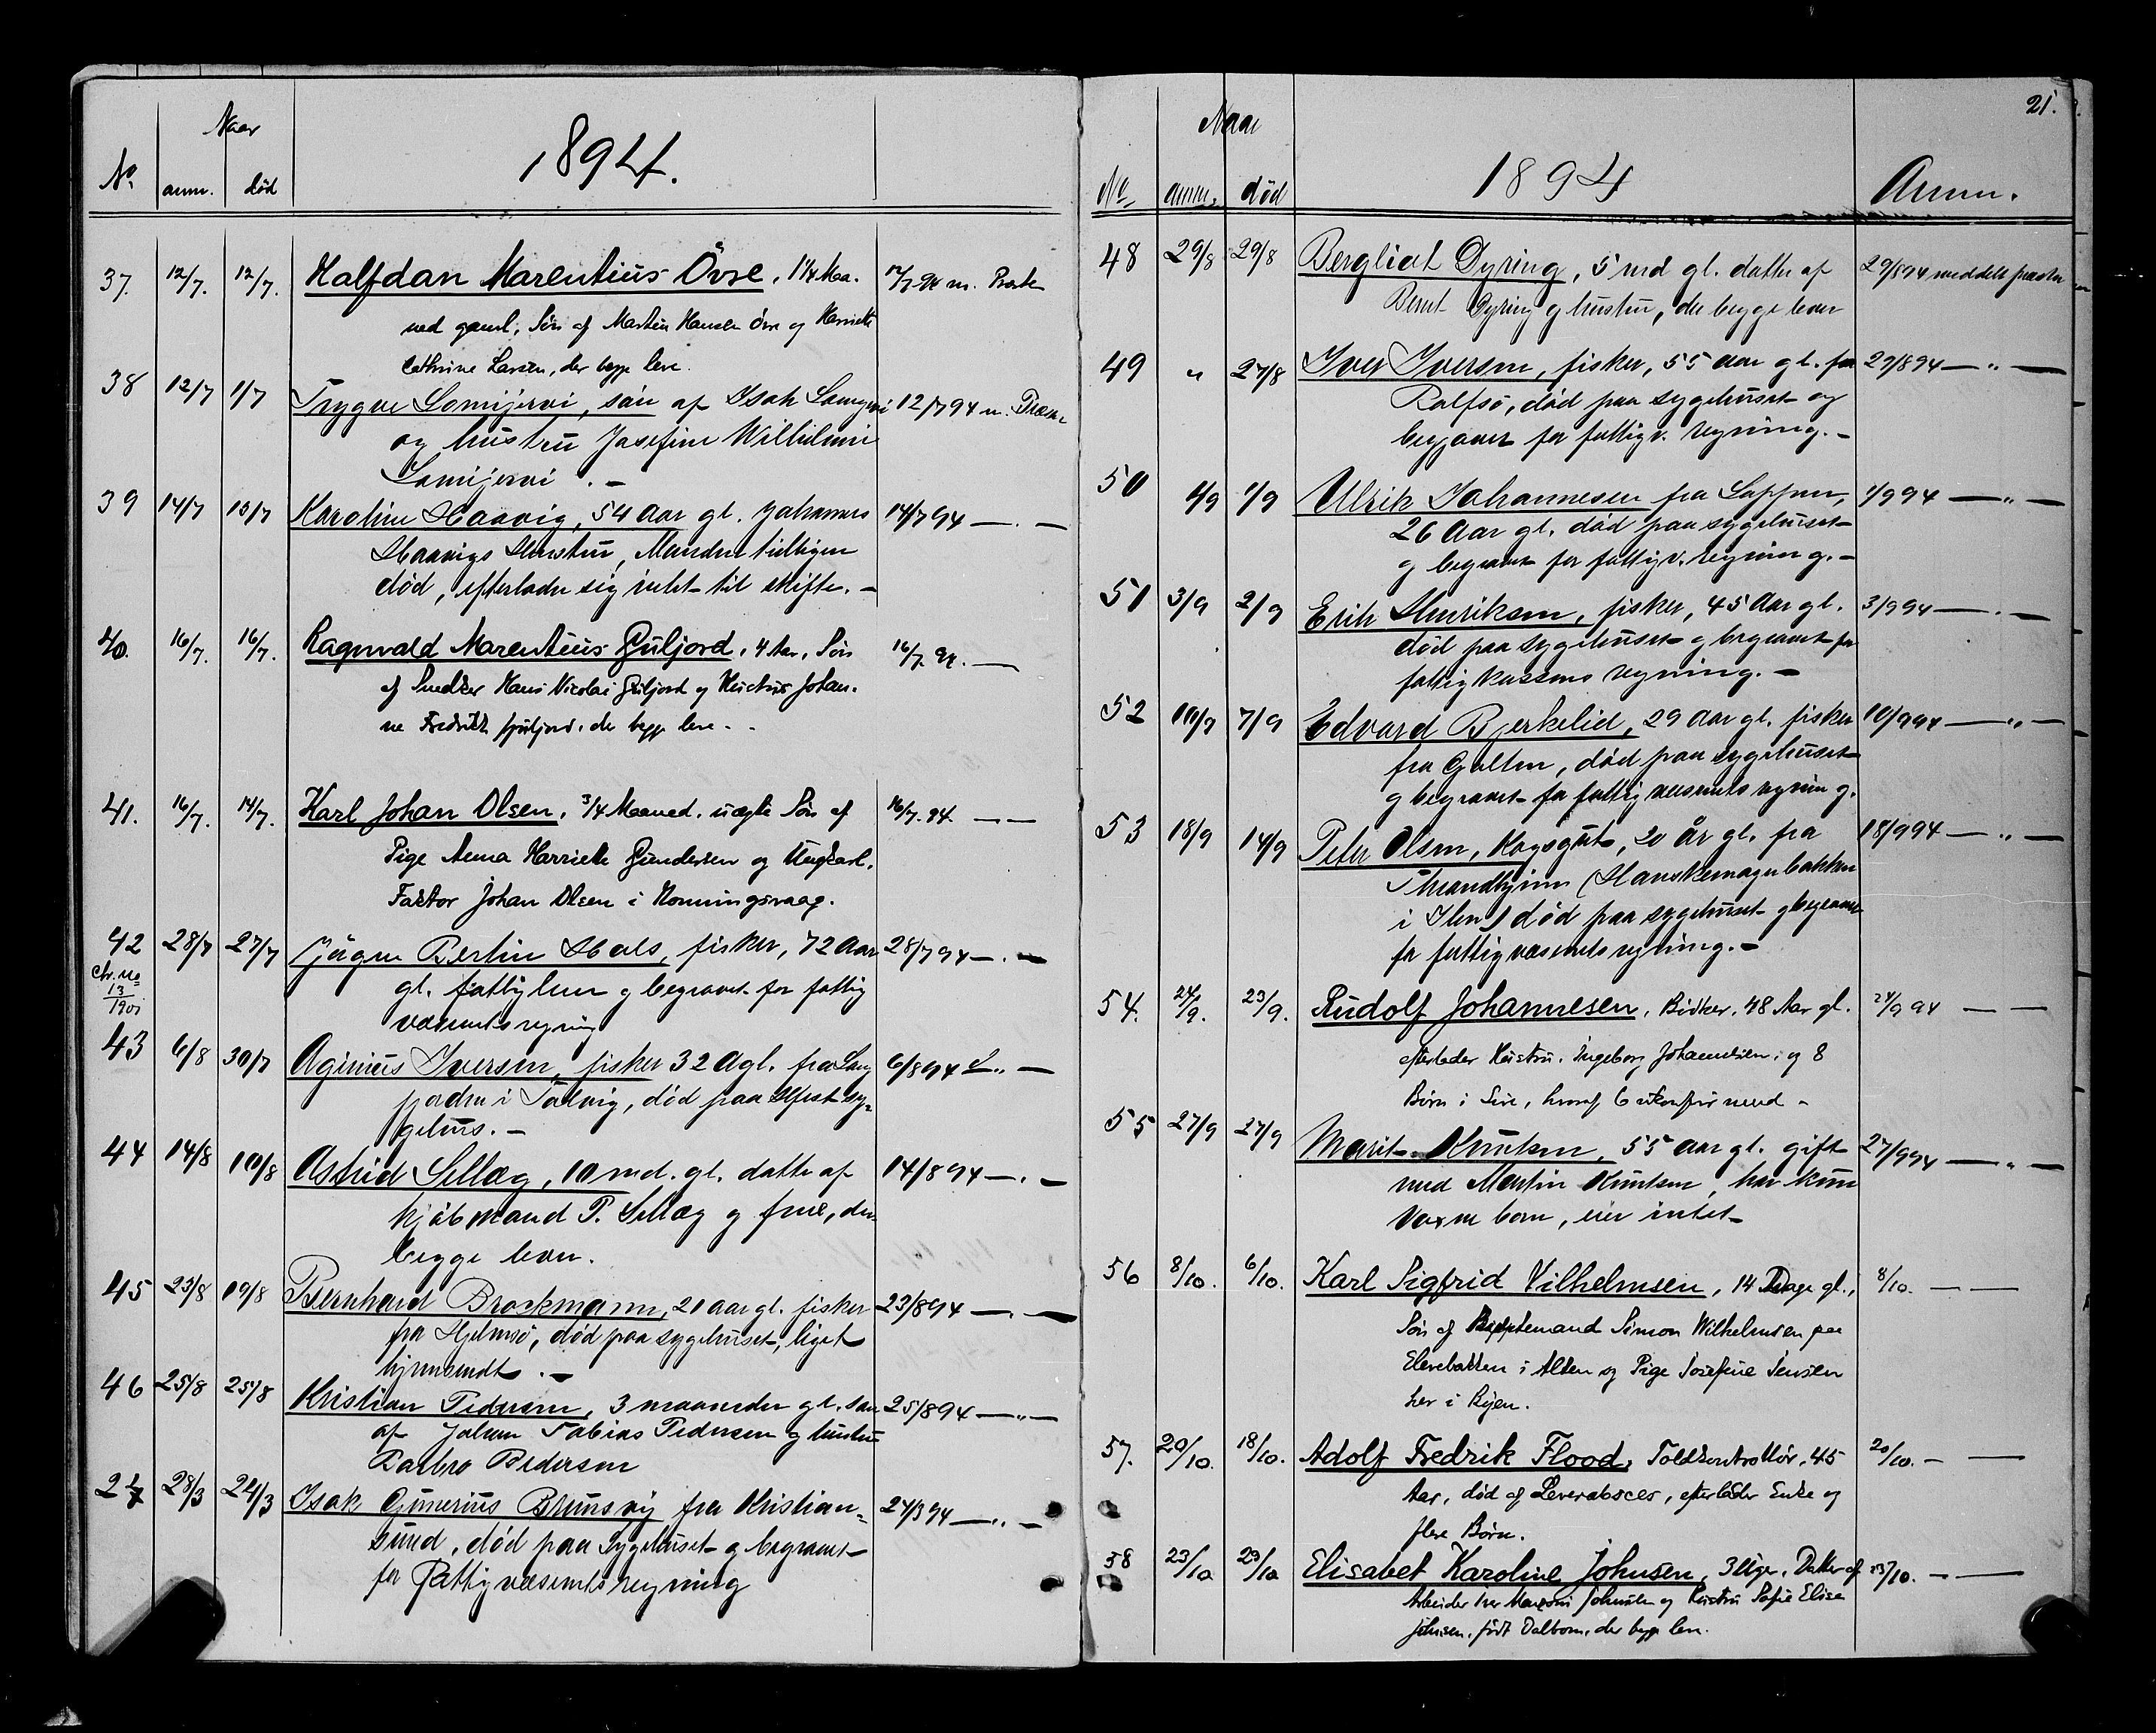 Naar
No anm. død 1894.
37. 12/7. 12/7. Halfdan Marentius Övre, 1 1/4 Maa- 12/7 94 m. Præste
ned gaml, Søn af Martin Hansen Övre og Harriette
Cathrine Larsen, der begge leve.
38 12/7 1/7 Trygve Lomijervi, sön af Isak Lomijervi 12/7 94 m. Præste
og hustru Josefine Wilhelmine
Lomijervi . —
39 14/7 13/7 Karoline Haavig, 54 aar gl. Johannes 14/7 94 — . —
Haavigs Hustru, Manden tidligere
död, efterlader sig intet til skifte. —
40. 16/7. 16/7. Ragnvald Marentius Guljord, 4 Aar, Søn 16/7. 94. —
af Snedker Hans Nicolai Guljord og Hustru Johan-
ne Fredrikke Guljord, der begge leve. -
41. 16/7. 14/7. Karl Johan Olsen, 3/4 Maaned, uægte Søn af 16/7. 94. — —
Pige Anna Harriette Gundersen og Ungkarl,
Faktor Johan Olsen i Honningsvaag.
42 28/7 27/7 Jögen Bertin Hals, fisker, 72 Aar 28/7 94 — . —
gl. fattiglem og begravet for fattig
væsenets regning
43 6/8 30/7 Aginius Iversen, fisker 32 A gl. fra Lang 6/8 94 — " —
fjorden i Talvig, død paa Hfest sy=
gehus. —
44 14/8 10/8 Astrid Sellæg, 10 md. gl. datter af 14/8 94 — . —
kjöbmand P. Sellæg og frue, der
begge lever.
45 23/8 19/8 Bernhard Brockmann, 21 aar gl. fisker 23/8 94 — . —
fra Hjelmsö, död paa sygehuset, liget
hjemsendt . —
46 25/8 25/8 Kristian Pedersen, 3 maaneder gl. søn 25/8 94 — " —
af Johan Tobias Pedersen og hustru
Barbro Pedersen
28/3 24/3 Isak Gunerius Brunsvig fra Kristian= 24/3 94 — " —
sund, död paa Sygehuset og begravet
for Fattigvæsenets regning
21.
Naar
No anm. död 1894 Anm.
48 29/8 29/8 Bergliot Dyring, 5 md gl. datter af 29/8 94 meddelt præsten
Bernt Dyring og hustru, der begge lever
49 " 27/8 Iver Iversen, fisker, 55 aar gl. fra 29/8 94 — " —
Rolfsö, död paa sygehuset og
begravet for fattigv. regning. —
50 1/9 1/9 Ulrik Johannesen fra Loppen, 1/9 94 — " —
26 Aar gl. død paa sygehuset
og begravet for fattigv. regning. —
51 3/9 2/9 Erik Henriksen, fisker, 45 Aar gl. 3/9 94 — . —
död paa sygehuset og begravet for
fattigkassens regning. —
52 10/9 7/9 Edvard Bjerkelid, 29 aar gl. fisker 10/9 94 — " —
fra Galten, död paa sygehuset
og begravet for fattigvæsenets regning.
53 18/9 14/9 Peter Olsen, Kogsgut, 20 år gl. fra 18/9 94 — " —
Throndhjem (Hanskemagerbakken
i Ilen) död paa sygehuset og begravet
for fattigvæsenets regning. —
54. 24/9. 23/9. Rudolf Johannesen, Bødker, 48 Aar gl. 24/9 94 — —
efterlader Hustru, Ingeborg Johannesen, og 8
Børn i Live, hvoraf 6 ukonfirmered -
55 27/9 27/9 Marit Knutsen, 55 aar gl. gift 27/9 94 — " —
med Martin Knutsen, har kun
voxne børn, eier intet
56 8/10. 6/10. Karl Sigfrid Vilhelmsen, 14 Dage gl., 8/10. — —
Søn af Simon Wilhelmsen paa
Elvebakken i Alten og Pige Josefine Jensen
her i Byen.
57. 20/10. 18/10. Adolf Fredrik Flood, Toldkontrollør, 45 20/10. — —
Aar, død af Leverabsces, efterlader Enke og
flere Børn.
58 23/10 23/10 Elisabet Karoline Johnsen, 3 Uger, Datter af 23/10. — —
Arbeider Iver Johnsen og Hustru Sofie Elise
Johnsen, født Dalbom, der begge leve.